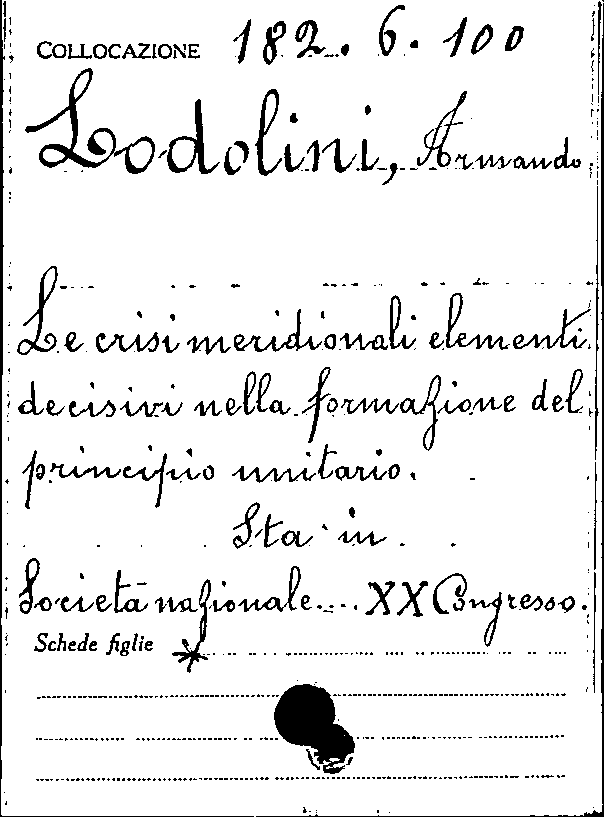 COLLOCAZIONE 182.6.100
Lodolini, Armando.
Le crisi meridionali elementi
decisivi nella formazione del
principio unitario.
Sta in
Società nazionale.... XX Congresso.
Schede figlie *